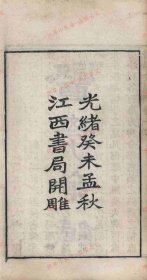 光緒癸未孟秋
江西書局開雕